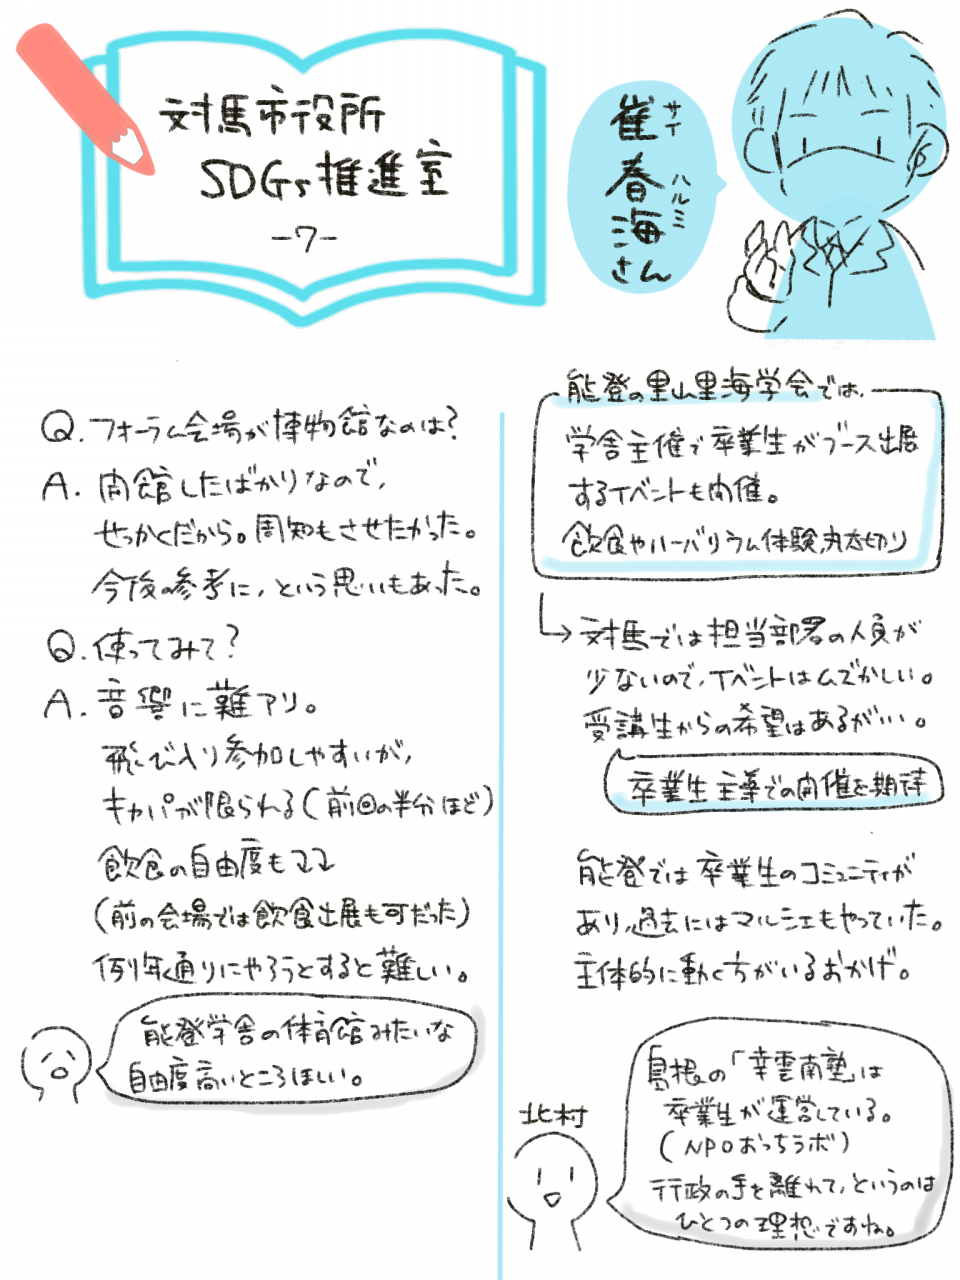 対馬市役所
SDGs推進室
-7-
崔春海さん
サイ
ハルミ
Q.フォーラム会場が博物館なのは?
A.開館したばかりなので,
せっかくだから。周知もさせたかった。
今後の参考に,という思いもあった。
Q.使ってみて?
A.音響に難アリ。
飛び入り参加しやすいが,
キャパが限られる(前回の半分ほど)
飲食の自由度もココ
(前の会場では飲食出展も可だった)
例年通りにやろうとすると難しい。
能登学舎の体育館みたいな
自由度高いところほしい。
能登の里山里海学会では,
学舎主催で卒業生がブース出展
するイベントも開催。
飲食やハーバリウム体験,丸太切り
→対馬では担当部署の人員が
少ないので,イベントはムズかしい。
受講生からの希望はあるが…。
卒業生主導での開催を期待
能登では卒業生のコミュニティが
あり,過去にはマルシェもやっていた。
主体的に動く方がいるおかげ。
北村
島根の「幸雲南塾」は
卒業生が運営している。
(NPOおっちラボ)
行政の手を離れて,というのは
ひとつの理想ですね。